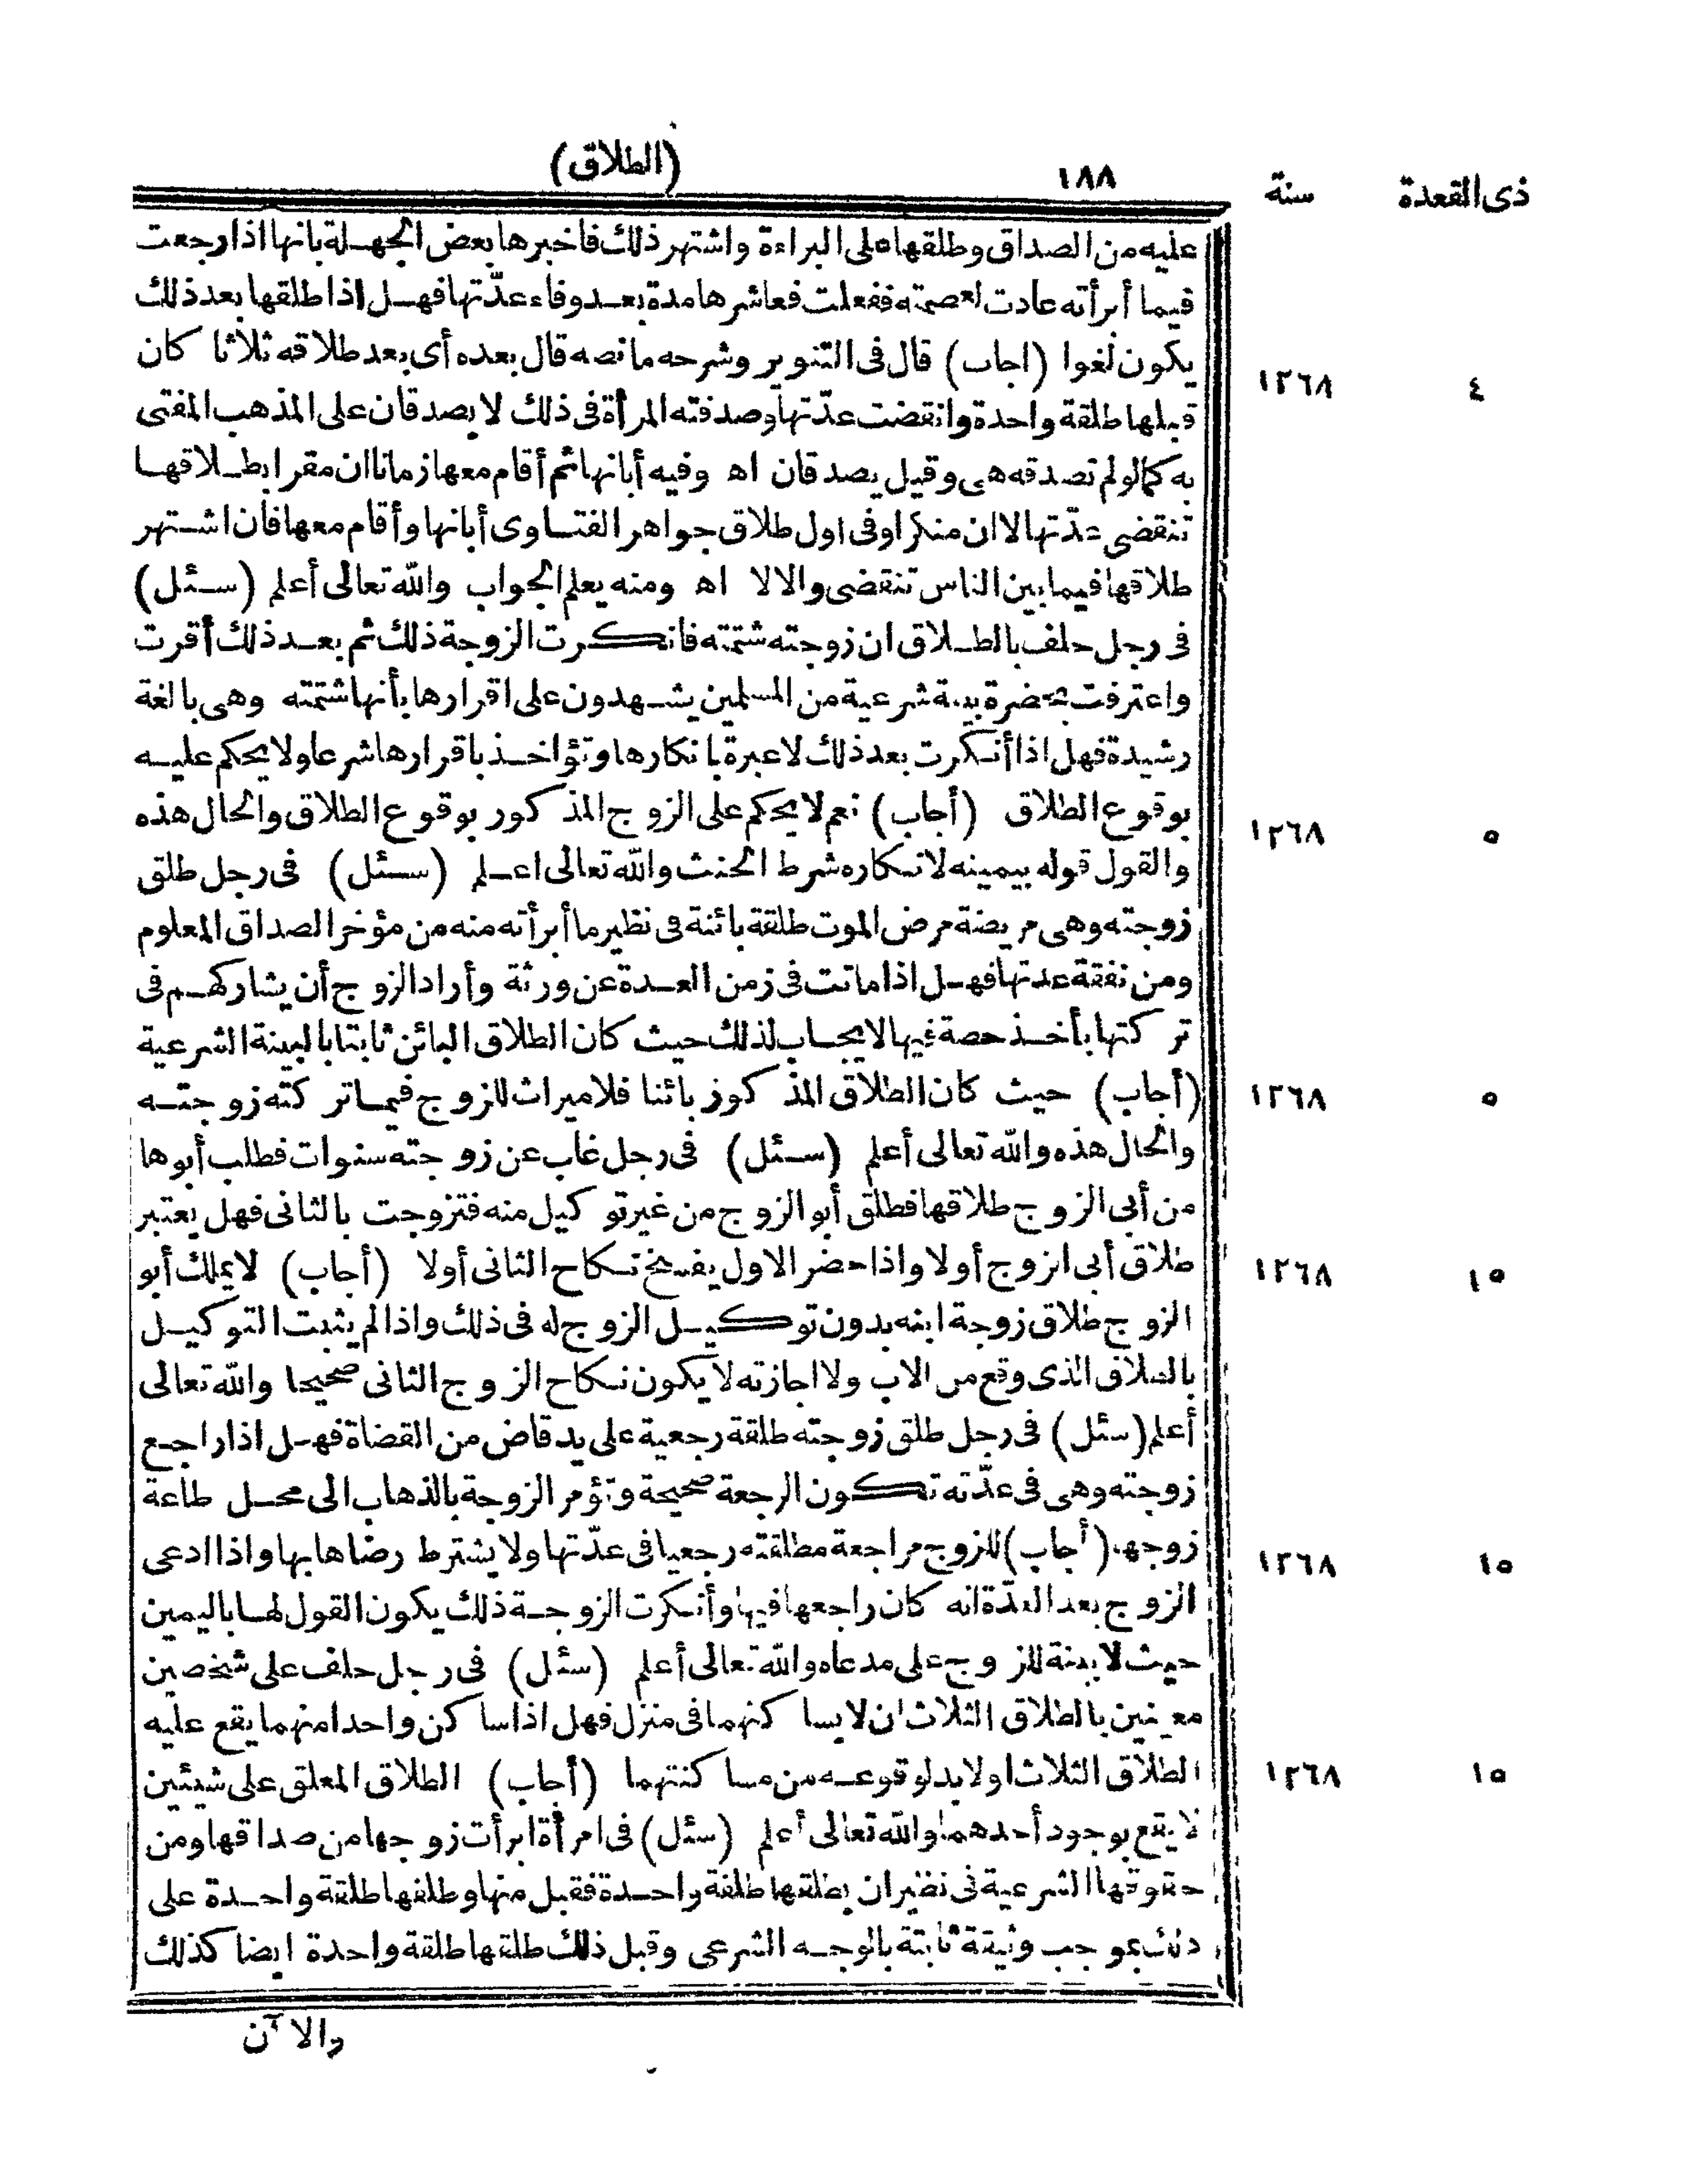 ذى القعدة سنة ١٨٨ (الطلاق)
عليه من الصداق وطلقها على البراءة واشتهر ذلك فاخبرها بعض الجهلة بانها اذا رجعت
فيما أبرأته عادت لعصمته ففعلت فعاشرها مدة بعد وفاء عدّتها فهل اذا طلقها بعد ذلك
يكون لغوا (اجاب) قال فى التنوير وشرحه ما نصه قال بعده أى بعد طلاقه ثلاثا كان
٤ ١٢٦٨
قبلها طلقة واحدة وانقضت عدّتها وصدقته المرأة فى ذلك لا يصدقان على المذهب المفتى
به كما لو لم تصدقه هى وقيل يصدقان اه وفيه أبانها ثم أقام معها زمانا ان مقرا بطلاقها
تنقضى عدّتها لا ان منكرا وفى اول طلاق جواهر الفتاوى أبانها وأقام معها فان اشتهر
طلاقها فيما بين الناس تنقضى والا لا اه ومنه يعلم الجواب والله تعالى أعلم (سئل)
فى رجل حلف بالطلاق ان زوجته شتمته فانكرت الزوجة ذلك ثم بعد ذلك أقرت
واعترفت بحضرة بينة شرعية من المسلمين يشهدون على اقرارها بأنها شتمته وهى بالغة
رشيدة فهل اذا أنكرت بعد ذلك لا عبرة بانكارها وتؤاخذ باقرارها شرعا ولا يحكم عليه
بوقوع الطلاق (أجاب) نعم لا يحكم على الزوج المذكور بوقوع الطلاق والحال هذه
٥ ١٢٦٨
والقول قوله بيمينه لانكاره شرط الحنث والله تعالى اعلم (سئل) فى رجل طلق
زوجته وهى مريضة مرض الموت طلقة بائنة فى نظير ما أبرأته منه من مؤخر الصداق المعلوم
ومن نفقة عدتها فهل اذا ماتت فى زمن العدة عن ورثة وأراد الزوج أن يشاركهم فى
تركتها بأخذ حصة فيها لا يجاب لذلك حيث كان الطلاق البائن ثابتا بالبينة الشرعية
(أجاب) حيث كان الطلاق المذكور بائنا فلا ميراث للزوج فيما تركته زوجته
٥ ١٢٦٨
والحال هذه والله تعالى أعلم (سئل) فى رجل غاب عن زوجته سنوات فطلب أبوها
من أبى الزوج طلاقها فطلق أبو الزوج من غير توكيل منه فتزوجت بالثانى فهل يعتبر
طلاق أبى الزوج أولا واذا حضر الاول يفسخ نكاح الثانى أولا (أجاب) لا يملك أبو
١٥ ١٢٦٨
الزوج طلاق زوجة ابنه بدون توكيل الزوج له فى ذلك واذا لم يثبت التوكيل
بالطلاق الذى وقع من الاب ولا اجازته لا يكون نكاح الزوج الثانى صحيحا والله تعالى
أعلم (سئل) فى رجل طلق زوجته طلقة رجعية على يد قاض من القضاة فهل اذا راجع
زوجته وهى فى عدّته تكون الرجعة صحيحة وتؤمر الزوجة بالذهاب الى محل طاعة
زوجها (أجاب) للزوج مراجعة مطلقته رجعيا فى عدّتها ولا يشترط رضاها بها واذا ادعى
١٥ ١٢٦٨
الزوج بعد العدّة انه كان راجعها فيها وأنكرت الزوجة ذلك يكون القول لها باليمين
حيث لا بينة للزوج على مدعاه والله تعالى أعلم (سئل) فى رجل حلف على شخصين
معينين بالطلاق الثلاث ان لا يساكنهما فى منزل فهل اذا ساكن واحدا منهما يقع عليه
الطلاق الثلاث او لا بد لوقوعه من مساكنتهما (أجاب) الطلاق المعلق على شيئين
١٥ ١٢٦٨
لا يقع بوجود أحدهما والله تعالى أعلم (سئل) فى امرأة ابرأت زوجها من صداقها ومن
حقوقها الشرعية فى نظير ان يطلقها طلقة واحدة فقبل منها وطلقها طلقة واحدة على
ذلك بموجب وثيقة ثابتة بالوجه الشرعى وقبل ذلك طلقها طلقة واحدة ايضا كذلك
والآن